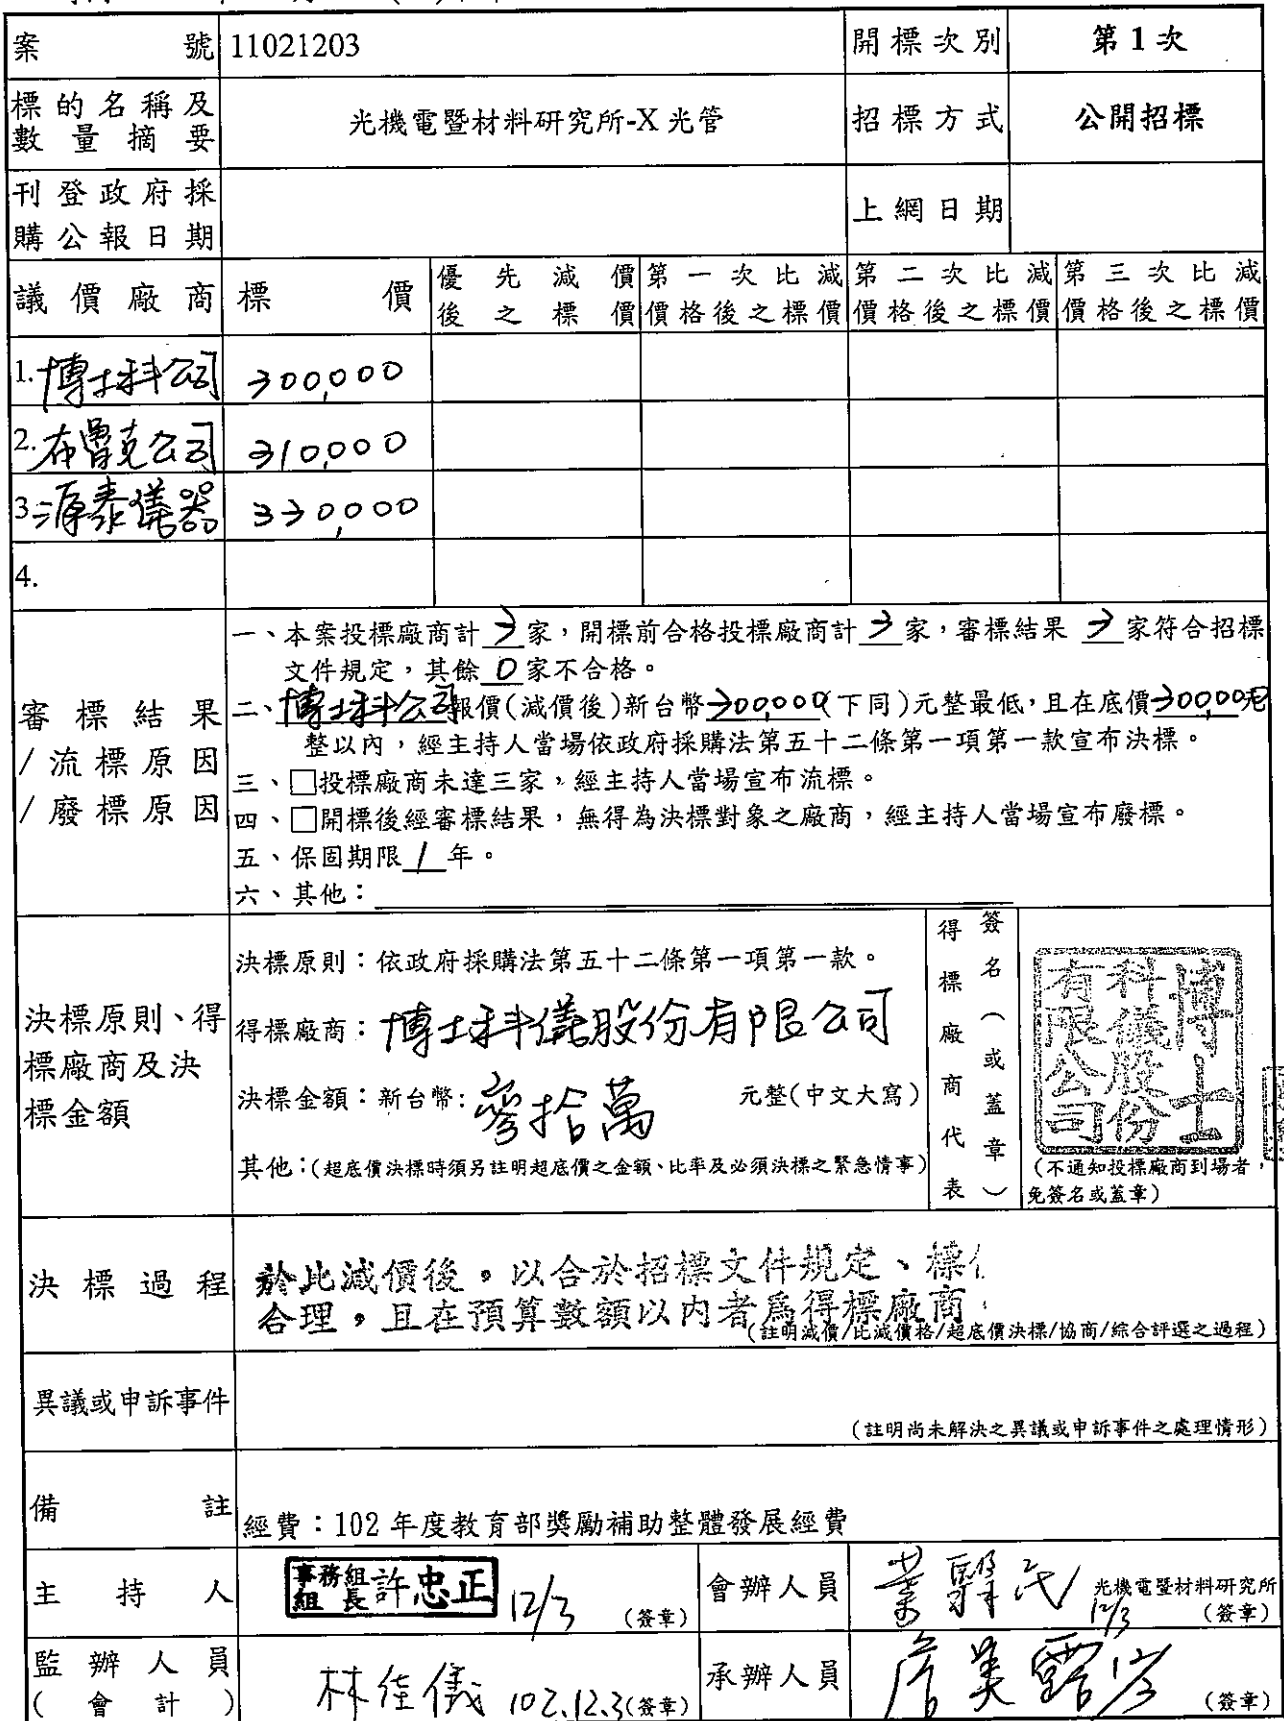 案號 11021203 開標次別 第1次
標的名稱及數量摘要 光機電暨材料研究所-X光管 招標方式 公開招標
刊登政府採購公報日期 上網日期
議價廠商 標價 優先減價後之標價 第一次比減價格後之標價 第二次比減價格後之標價 第三次比減價格後之標價
1.博士科公司 300,000
2.布魯克公司 310,000
3.源泰儀器 330,000
4.
審標結果/流標原因/廢標原因
一、本案投標廠商計 3 家，開標前合格投標廠商計 3 家，審標結果 3 家符合招標
文件規定，其餘 0 家不合格。
二、博士科公司報價(減價後)新台幣300,000(下同)元整最低，且在底價300,00元
整以內，經主持人當場依政府採購法第五十二條第一項第一款宣布決標。
三、□投標廠商未達三家，經主持人當場宣布流標。
四、□開標後經審標結果，無得為決標對象之廠商，經主持人當場宣布廢標。
五、保固期限 1 年。
六、其他：
決標原則、得標廠商及決標金額
決標原則：依政府採購法第五十二條第一項第一款。
得標廠商：博士科儀股份有限公司
決標金額：新台幣：參拾萬 元整(中文大寫)
其他：(超底價決標時須另註明超底價之金額、比率及必須決標之緊急情事)
得標廠商代表
簽名（或蓋章）
博士科儀股份有限公司
(不通知投標廠商到場者，
免簽名或蓋章)
決標過程
於比減價後。以合於招標文件規定、標
合理，且在預算數額以內者為得標廠商
(註明減價/比減價格/超底價決標/協商/綜合評選之過程)
異議或申訴事件
(註明尚未解決之異議或申訴事件之處理情形)
備註 經費：102年度教育部獎勵補助整體發展經費
主持人 事務組組長許忠正 12/3 (簽章) 會辦人員 光機電暨材料研究所 12/3 (簽章)
監辦人員(會計) 林佳儀 102.12.3(簽章) 承辦人員 (簽章)